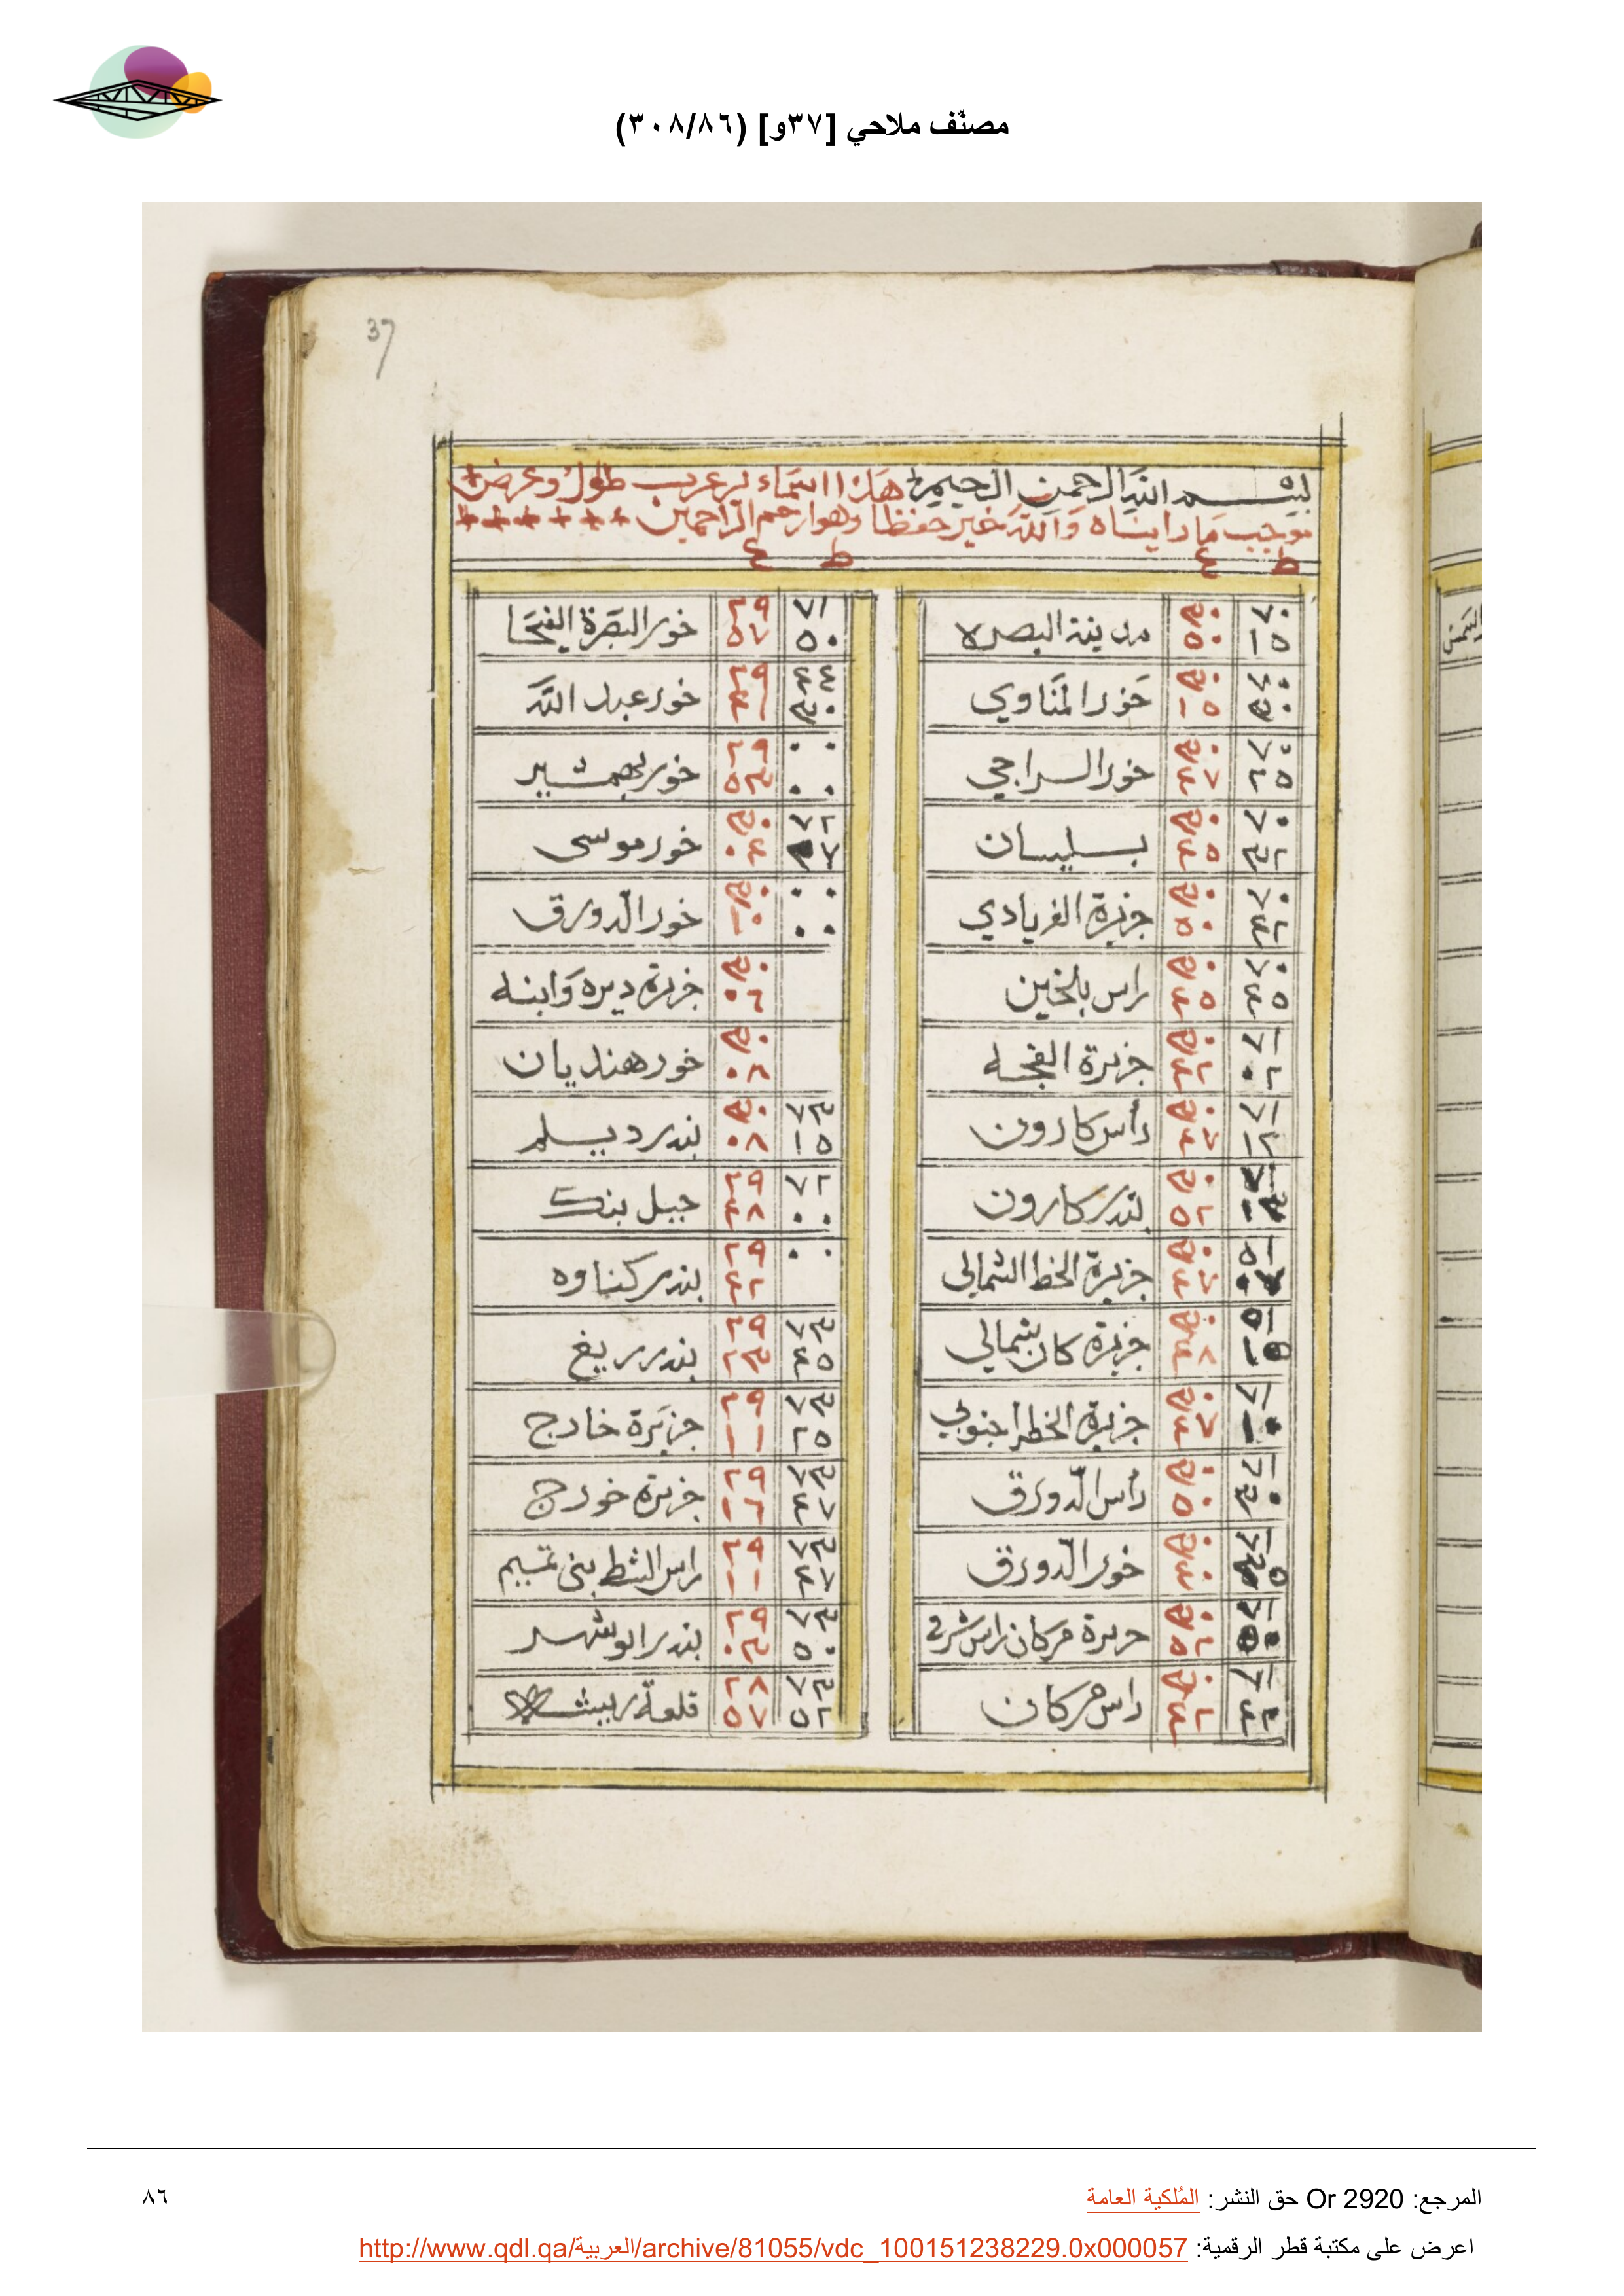 مصنّف ملاحي [٣٧و] (٣٠٨/٨٦)
37
بسم الله الرحمن الرحيم هذا اسماء بر عرب طول وعرض
موجب ما رايناه والله خير حفظا وهو ارحم الراحمين
ط ع ط ع
٧٠ ١٥ ٣٠ ٥٠ مدينة البصره
٣٠ ١٥ خور المناوي
٧٠ ٢٥ ٣٠ ٤٧ خور السراجي
٧٠ ٣٢ ٣٠ ٤٥ بسليسان
٧٠ ٤٢ ٣٠ ٥٠ جزيرة الغريادي
٧٠ ٤٥ ٣٠ ٤٥ راس بلخين
٧١ ٠٢ ٣٠ ٤٢ جزيرة الفجحه
٧١ ١٢ ٣٠ ٤٧ راس كارون
٣٠ ٥٢ بندر كارون
٣٠ ٤٧ جزيرة الخط الشمالي
٣٠ ٤٨ جزيرة كان بشمالي
٧١ ١٠ ٣٠ ٤٧ جزيرة الخط اجنوبي
٧١ ٣٠ ٣٠ ٥٠ راس الدورق
٣٠ ٤٠ خور الدورق
٣٠ ٢٥ جزيرة مركان راس شرقي
٧١ ٤٢ ٣٠ ٤٢ راس مركان
٧١ ٥٠ ٢٩ ٥٧ خور البصرة الفيحا
٤٤ ٣٠ ٢٩ ٤١ خور عبد الله
٠٠ ٠٠ ٢٩ ٥٣ خور بهمشير
٧٢ ٣٠ ٠٤ خور موسى
٠٠ ٠٠ ٣٠ ١٠ خور الدورق
٣٠ ٠٦ جزيرة ديره وابنه
٣٠ ٠٨ خور هنديان
٧٣ ١٥ ٣٠ ٠٨ بندر ديسلم
٧٢ ٠٠ ٢٩ ٤٨ جبل بنك
٠٠ ٢٩ ٤٢ بندر كناوه
٧٣ ٤٥ ٢٩ ٢٣ بندر ريغ
٧٣ ٢٥ ٢٩ ١١ جزيرة خارج
٧٣ ٤٧ ٢٩ ١٦ جزيرة خورج
٧٣ ٤٧ ٢٩ ١١ راس الشط بني تميم
٧٣ ٥٠ ٢٩ ٠٣ بندر ابوشهر
٧٣ ٥٢ ٢٨ ٥٧ قلعة
المرجع: Or 2920 حق النشر: المُلكية العامة
٨٦
اعرض على مكتبة قطر الرقمية: http://www.qdl.qa/العربية/archive/81055/vdc_100151238229.0x000057